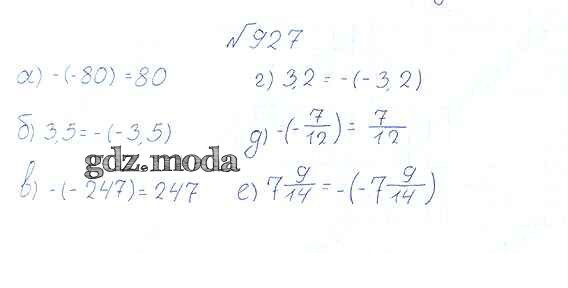 №927
а) -(-80) = 80
г) 3,2 = -(-3,2)
б) 3,5 = -(-3,5)
д) -(-7/12) = 7/12
gdz.moda
в) -(-247) = 247
е) 7 9/14 = -(-7 9/14)